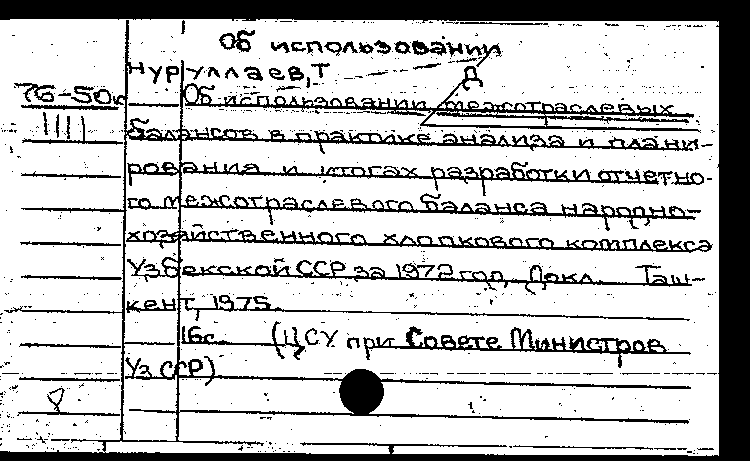 Об использовании
Нуруллаев, Т
Д
76-50к
Об использовании межотраслевых
балансов в практике анализа и плани-
рования и итогах разработки отчетно-
го межотраслевого баланса народно-
хозяйственного хлопкового комплекса
Узбекской ССР за 1972 год. Докл. Таш-
кент, 1975.
16с. (ЦСУ при Совете Министров
Уз ССР)